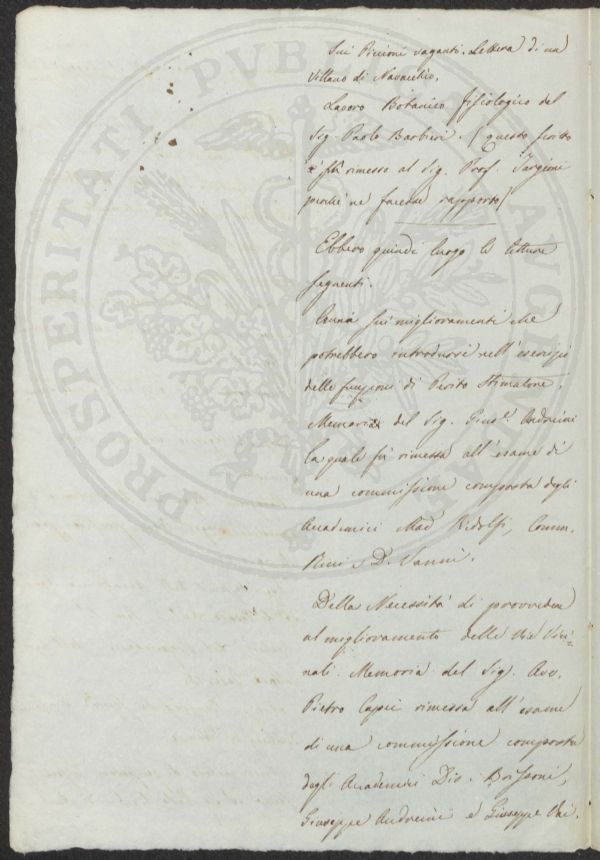 Sui Piccioni vaganti. Lettera di un
Villano di Navacchio.
Lavoro Botanico fisiologico del
Sig. Paolo Barbieri. (questo scritto
fù rimesso al Sig. Prof. Targioni
perché ne facesse rapporto)
Ebbero quindi luogo le letture
seguenti.
sui miglioramenti che
potrebbero introdursi nell'esercizio
delle funzioni di Perito Stimatore,
Memoria del Sig. Gius.e Andreini
la quale fù rimessa all'esame di
una commissione composta degli
Accademici Ridolfi, Comm.
e D. Vanni.
Della Necessità di provvedere
al miglioramento delle Vie Vici-
nali. Memoria del Sig. Avv.
Pietro Capei rimessa all'esame
di una commissione composta
degli Accademici
Giuseppe Andreini e Giuseppe
PROSPERITATI PVBLICAE AVGENDAE